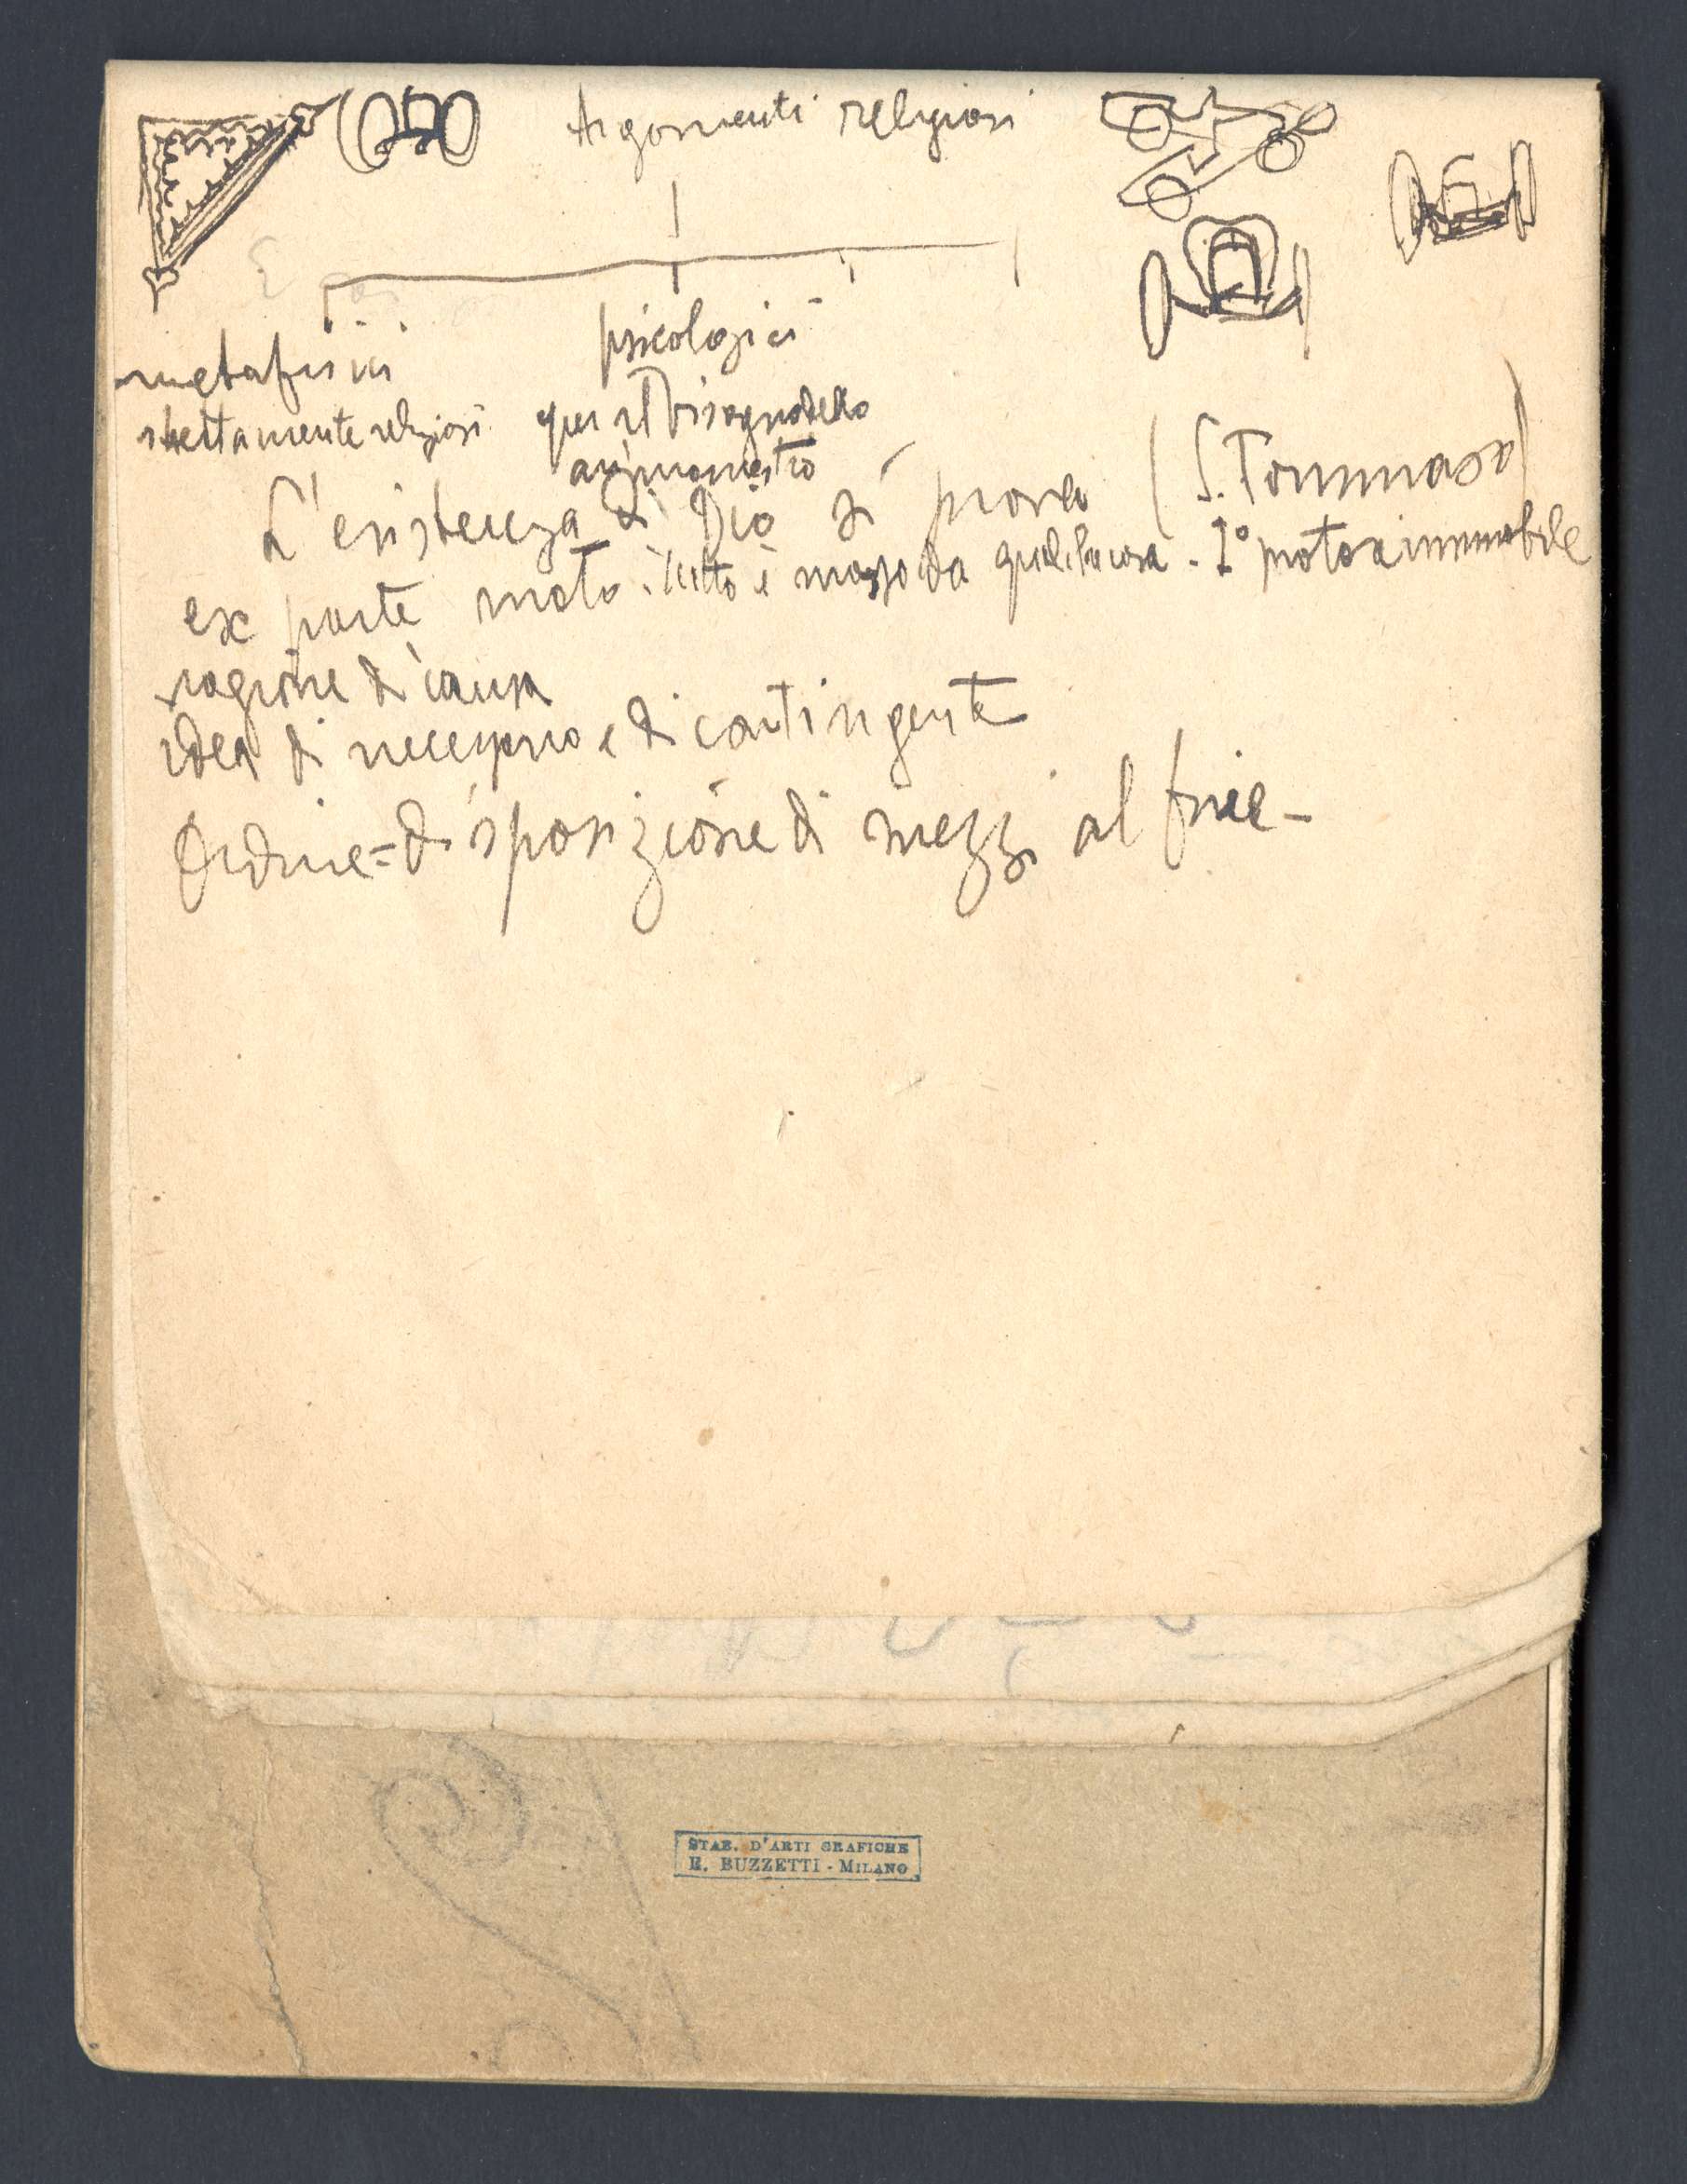 Argomenti religiosi
metafisici
psicologici
strettamente religiosi
per il bisogno dello
L'esistenza di Dio si prova (S. Tommaso)
ex parte moto. Tutto è mosso da qualche cosa - I° motore immobile
ragione di causa
idea di necessario e di contingente
Ordine = disposizione di mezzi al fine -
STAB. D'ARTI GRAFICHE
E. BUZZETTI - MILANO